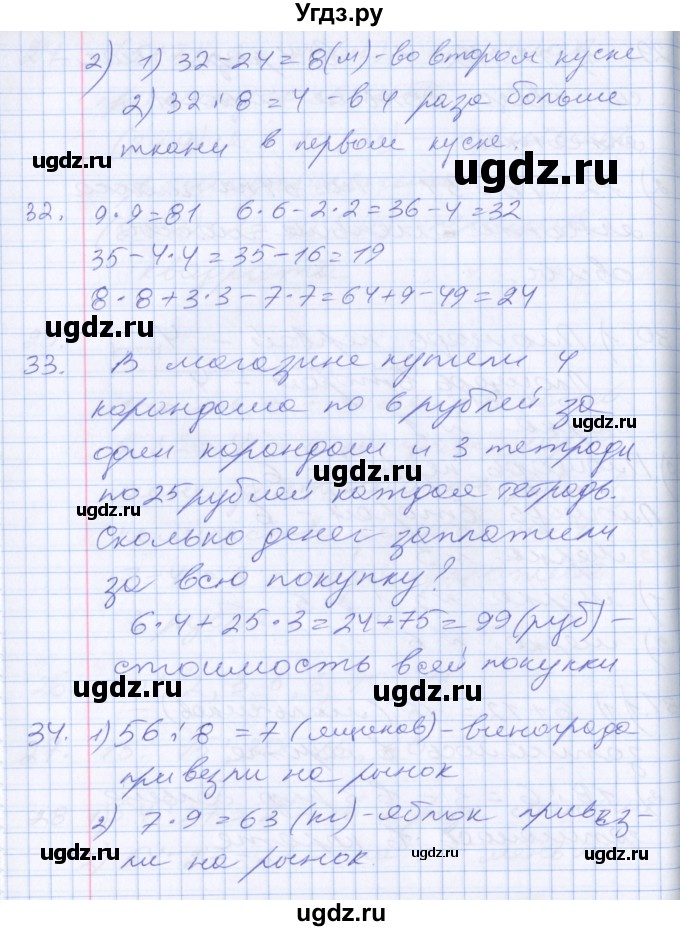 Угдз.ру
2) 1) 32-24=8(м)-во втором куске
2) 32:8=4 - в 4 раза больше
ткани в первом куске.
ugdz.ru
ugdz.ru
32. 9·9=81 6·6-2·2=36-4=32
35-4·4=35-16=19
8·8+3·3-7·7=64+9-49=24
ugdz.ru
33. В магазине купили 4
карандаша по 6 рублей за
ugdz.ru
один карандаш и 3 тетради
ugdz.ru
по 25 рублей каждая тетрадь.
ugdz.ru
Сколько денег заплатили
за всю покупку?
ugdz.ru
6·4+25·3=24+75=99(руб)-
стоимость всей покупки
ugdz.ru
ugdz.ru
34. 1) 56:8=7 (ящиков)-винограда
привезли на рынок
2) 7·9=63 (кг)-яблок привез-
ugdz.ru
ugdz.ru
ли на рынок.
ugdz.ru
ugdz.ru